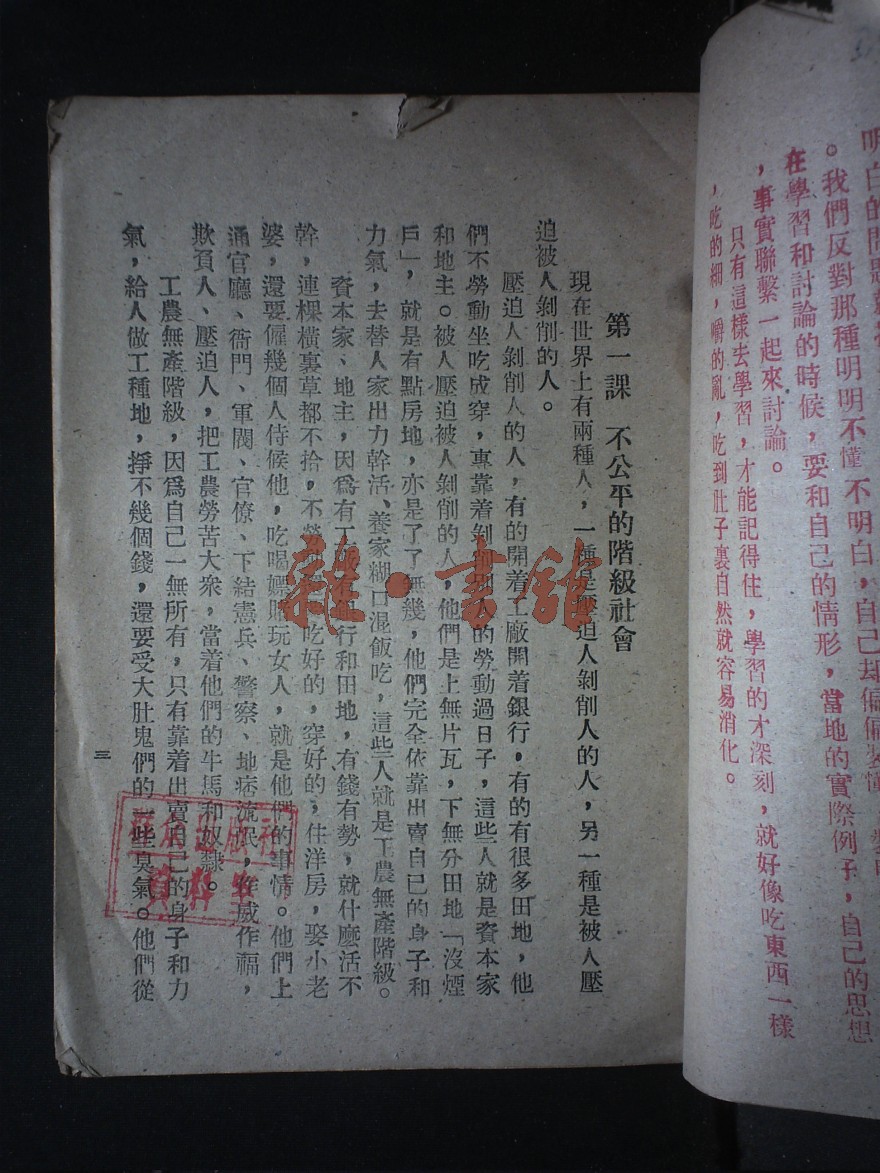 明白的問題就
。我們反對那種明明不懂不明白，自己却偏偏裝懂
在學習和討論的時候，要和自己的情形，當地的實際例子，自己的思想
，事實聯繫一起來討論。
只有這樣去學習，才能記得住，學習的才深刻，就好像吃東西一樣
，吃的細，嚼的亂，吃到肚子裏自然就容易消化。
第一課　不公平的階級社會
現在世界上有兩種人，一種是壓迫人剝削人的人，另一種是被人壓
迫被人剝削的人。
壓迫人剝削人的人，有的開着工廠開着銀行，有的有很多田地，他
們不勞動坐吃成穿，專靠着剝削別人的勞動過日子，這些人就是資本家
和地主。被人壓迫被人剝削的人，他們是上無片瓦，下無分田地「沒煙
戶」，就是有點房地，亦是了了無幾，他們完全依靠出賣自已的身子和
力氣，去替人家出力幹活、養家糊口混飯吃，這些人就是工農無產階級。
資本家、地主，因爲有工廠有銀行和田地，有錢有勢，就什麼活不
幹，連棵橫裏草都不拾，不勞動還吃好的，穿好的，住洋房，娶小老
婆，還要僱幾個人侍候他，吃喝嫖賭玩女人，就是他們的事情。他們上
通官廳、衙門、軍閥、官僚、下結憲兵、警察、地痞流氓，作威作福，
欺負人、壓迫人，把工農勞苦大衆，當着他們的牛馬和奴隸。
工農無產階級，因爲自己一無所有，只有靠着出賣自己的身子和力
氣，給人做工種地，掙不幾個錢，還要受大肚鬼們的一些臭氣。他們從
三
雜·書館
出版社
資料室